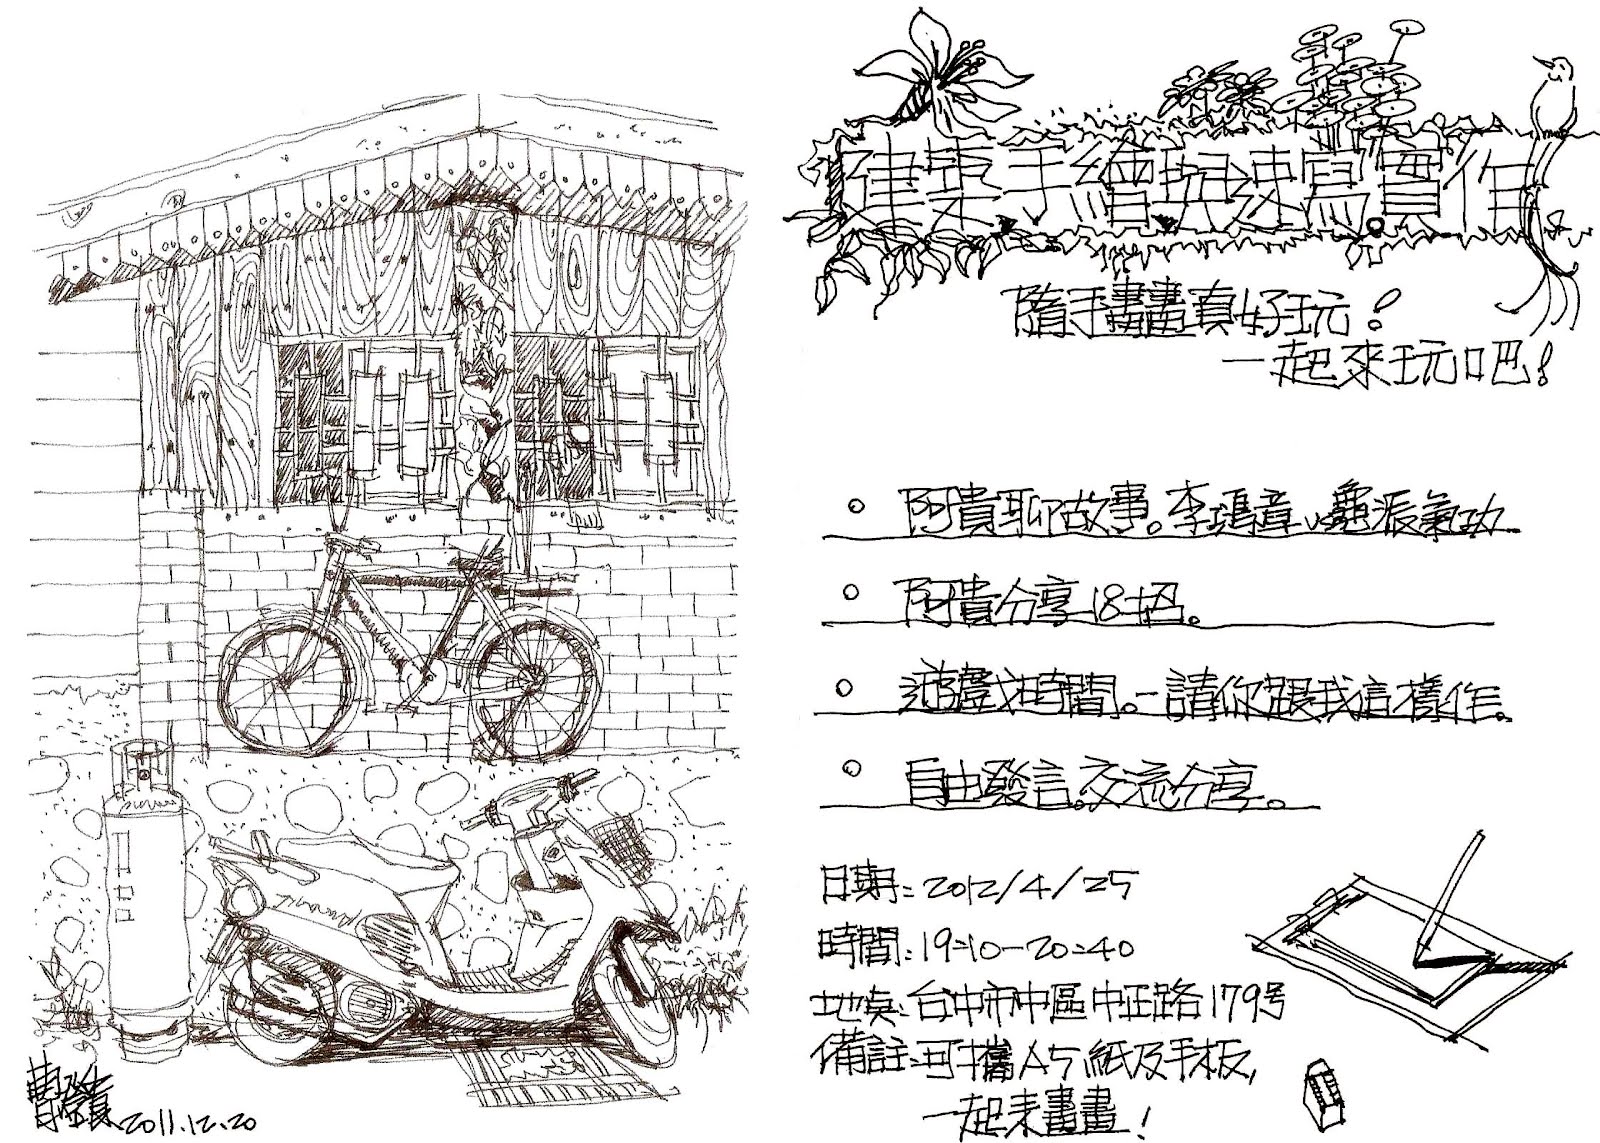 建築手繪與速寫實作
隨手畫畫真好玩!
一起來玩吧!
。阿貴聊故事。李瑪章vs龜派氣功
。阿貴分享18招。
。遊戲時間。-請你跟我這樣作。
。自由發言。交流分享。
日期:2012/4/25
時間:19:10-20:40
地点:台中市中區中正路179号
備註:可攜A5紙及手板,
一起來畫畫!
2011.12.20